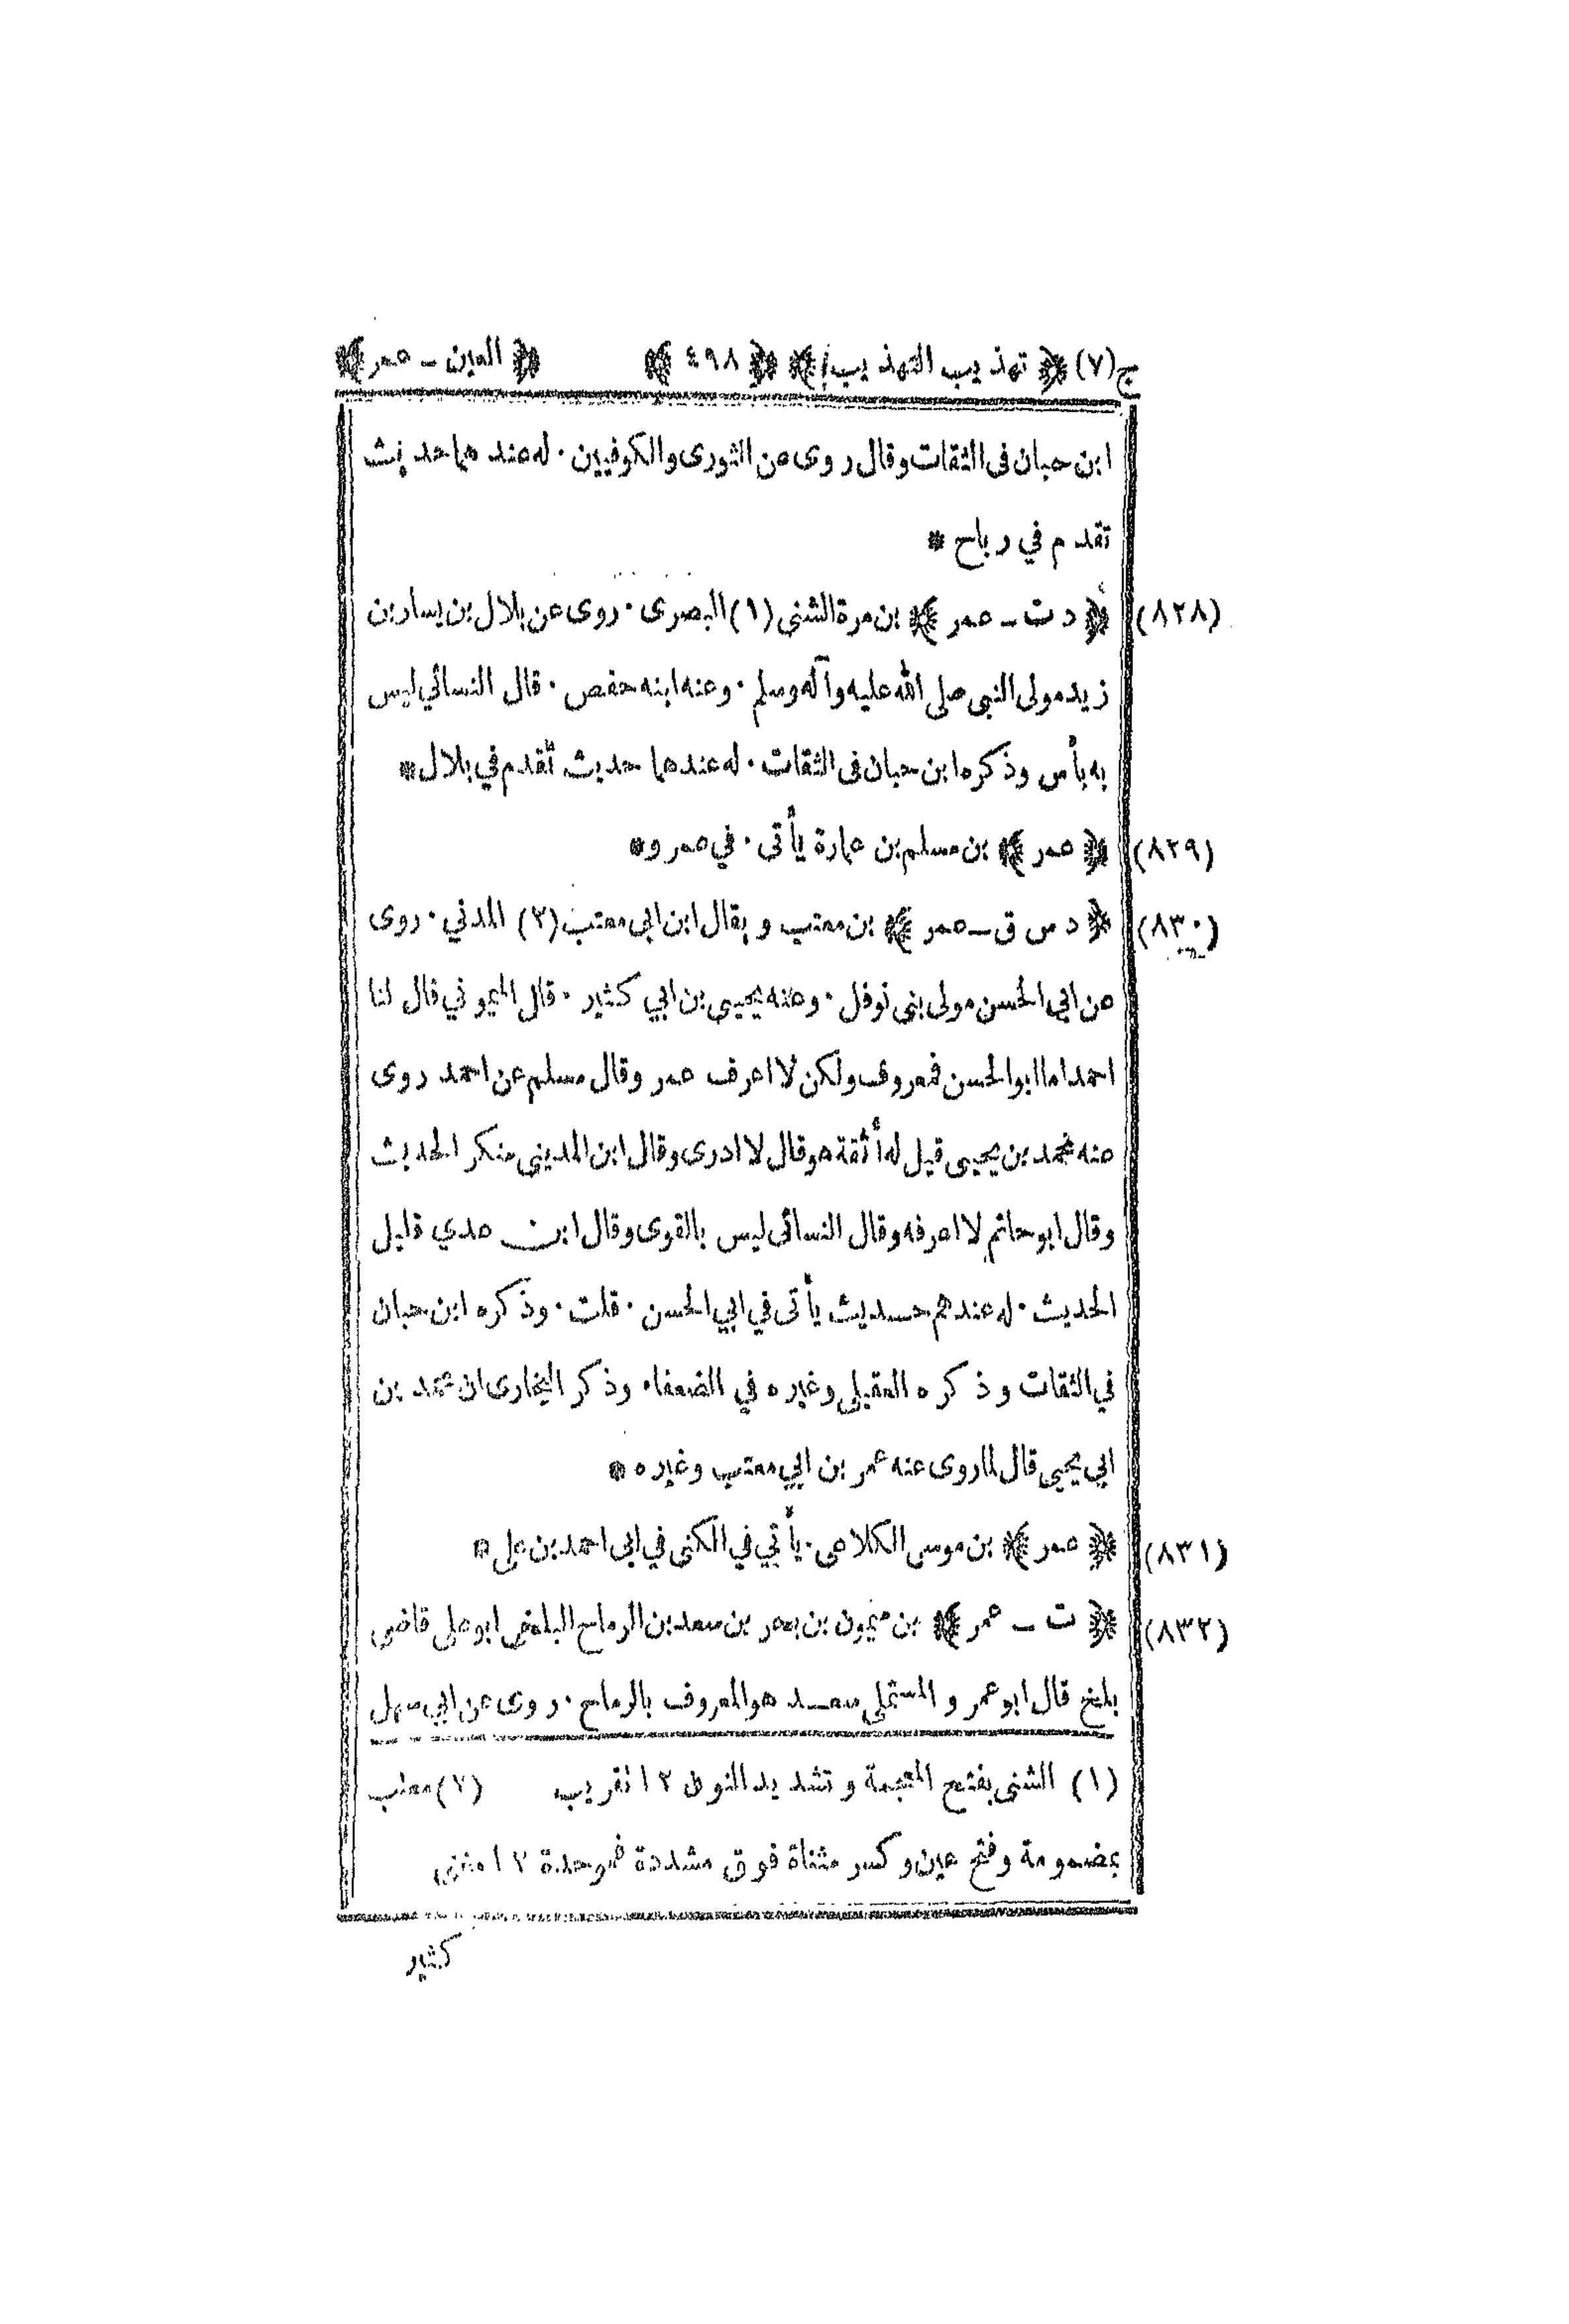 ج(٧) ﴿ تهذيب التهذيب ﴾ ﴿ ٤٩٨ ﴾ ﴿ العين ـ عمر ﴾
ابن حبان فى الثقات وقال روى عن الثورى والكوفيين · له عندهما حديث
تقدم في رباح *
(٨٢٨) ﴿ د ت ـ عمر ﴾ بن مرة الشنى (١) البصرى · روى عن بلال بن يسار بن
زيد مولى النبى صلى الله عليه وآله وسلم · وعنه ابنه حفص · قال النسائي ليس
به بأس وذكره ابن حبان فى الثقات · له عندهما حديث تقدم في بلال *
(٨٢٩) ﴿ عمر ﴾ بن مسلم بن عمارة يأتى · في عمرو *
(٨٣٠) ﴿ د س ق ـ عمر ﴾ بن معتب ويقال ابن ابى معتب (٢) المدني · روى
عن ابي الحسن مولى بنى نوفل · وعنه يحيى بن ابي كثير · قال الميموني قال لنا
احمد اما ابو الحسن فمعروف ولكن لا اعرف عمر وقال مسلم عن احمد روى
عنه محمد بن يحيى قيل له أثقة هو قال لا ادرى وقال ابن المدينى منكر الحديث
وقال ابو حاتم لا اعرفه وقال النسائى ليس بالقوى وقال ابن عدي قليل
الحديث · له عندهم حديث يأتى في ابي الحسن · قلت · وذكره ابن حبان
في الثقات وذكره العقيلي وغيره في الضعفاء وذكر البخارى ان محمد بن
ابي يحيى قال لما روى عنه عمر بن ابي معتب وغيره *
(٨٣١) ﴿ عمر ﴾ بن موسى الكلاعى · يأتي في الكنى في ابى احمد بن على *
(٨٣٢) ﴿ ت ـ عمر ﴾ بن ميمون بن بحر بن سعد بن الرماح البلخى ابو على قاضى
بلخ قال ابو عمرو المستملى سعد هو المعروف بالرماح · روى عن ابي سهل
(١) الشنى بفتح المعجمة وتشديد النون ١٢ تقريب (٢) معتب
بمضمومة وفتح عين وكسر مثناة فوق مشددة فموحدة ١٢ مغنى
كثير